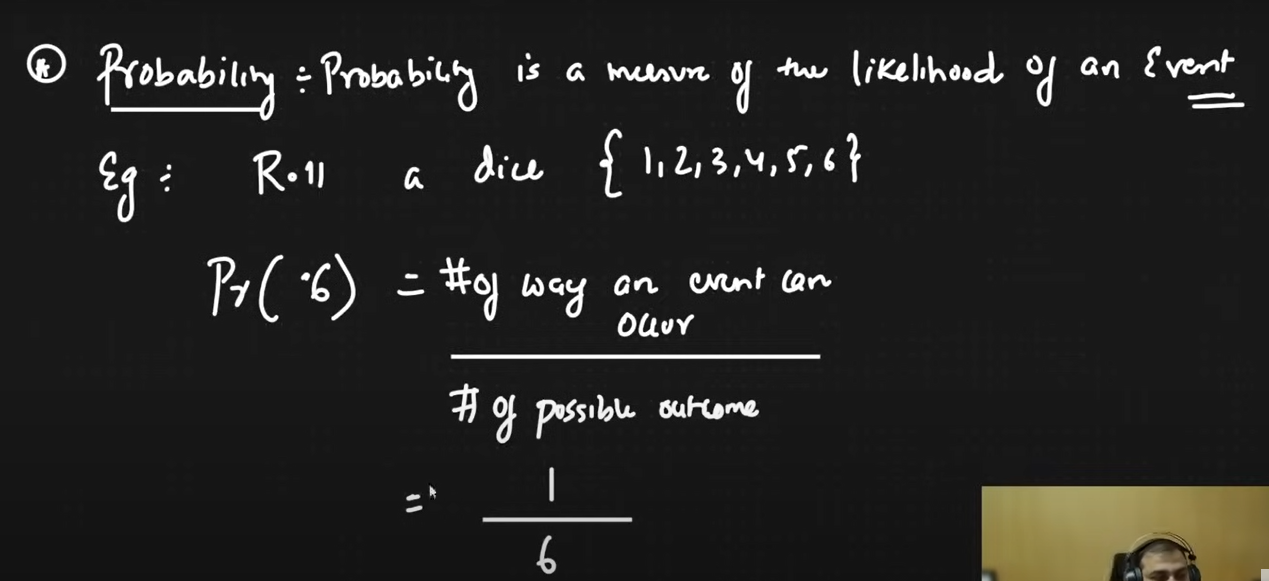 * Probability ÷ Probability is a measure of the likelihood of an Event
Eg : Roll a dice { 1, 2, 3, 4, 5, 6 }
Pr( 6 ) = # of way an event can
occur
# of possible outcome
= 1
6